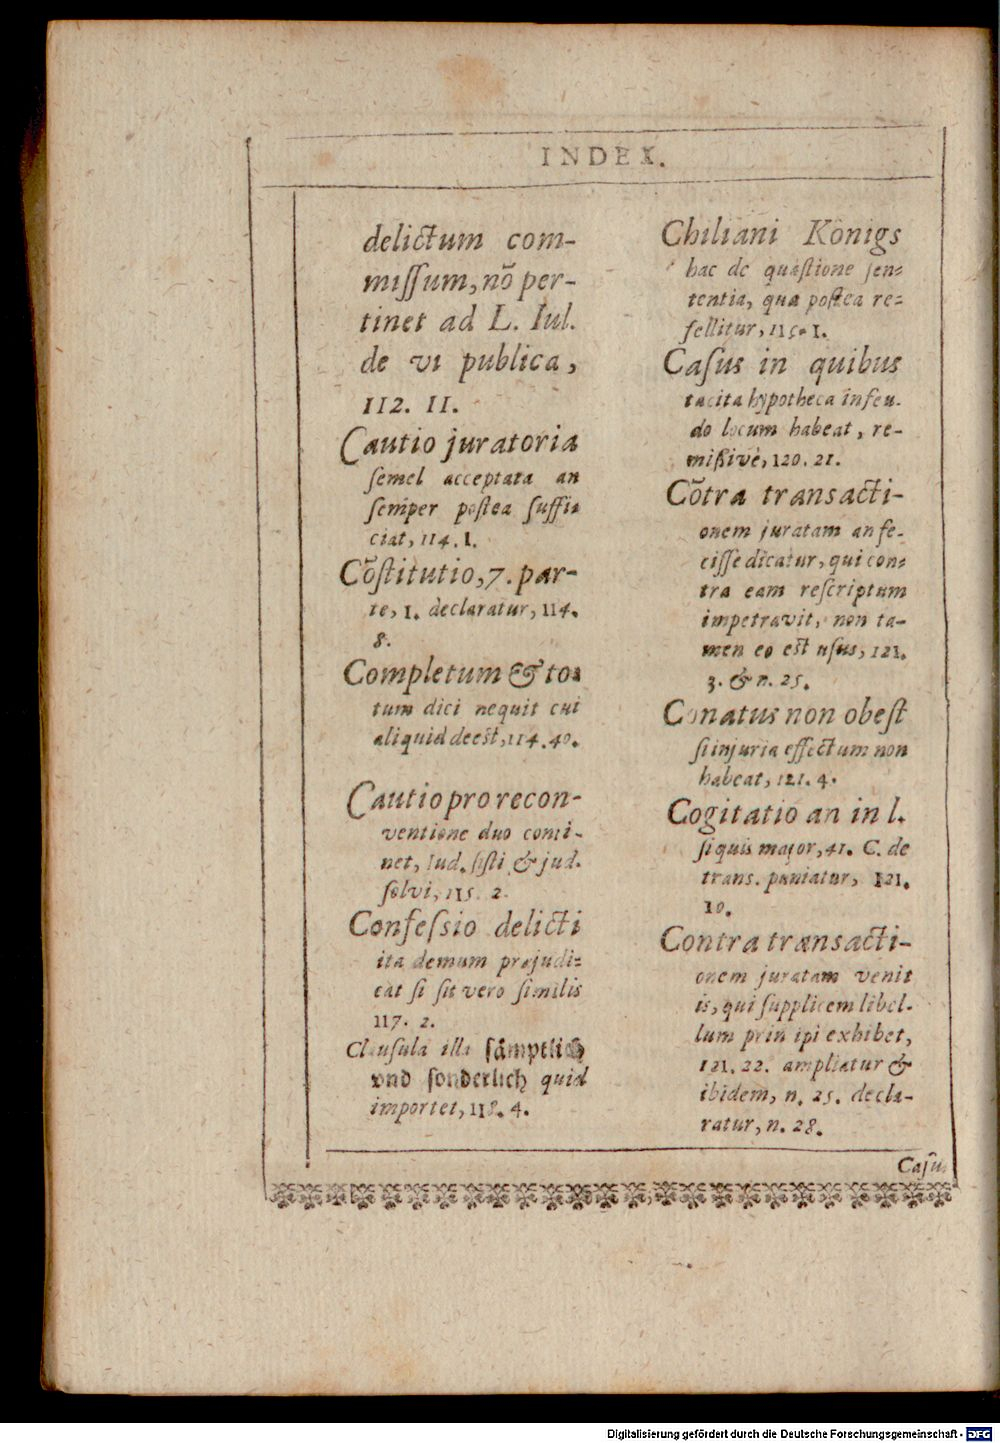 INDEX.
delictum com-
missum, nõ per-
tinet ad L. Iul.
de vi publica,
112. 11.
Cautio juratoria
semel acceptata an
semper postea suffi-
ciat, 114. 1.
Cõstitutio, 7. par-
te, 1. declaratur, 114.
8.
Completum & to-
tum dici nequit cui
aliquid deest, 114. 40.
Cautio pro recon-
ventione duo conti-
net, Iud. sisti & jud.
solvi, 115. 2.
Confessio delicti
ita demum præjudi-
cat si sit vero similis
117. 2.
Clausula illa sämptlich
vnd sonderlich quid
importet, 118. 4.
Chiliani Königs
hac de quæstione sen-
tentia, qua postea re-
fellitur, 115. 1.
Casus in quibus
tacita hypotheca in feu-
do locum habeat, re-
missivè, 120. 21.
Cõtra transacti-
onem juratam an fe-
cisse dicatur, qui con-
tra eam rescriptum
impetravit, non ta-
men eo est usus, 121.
3. & n. 25.
Conatus non obest
si injuria effectum non
habeat, 121. 4.
Cogitatio an in l.
si quis major, 41. C. de
trans. puniatur, 121.
10.
Contra transacti-
onem juratam venit
is, qui supplicem libel-
lum principi exhibet,
121. 22. ampliatur &
ibidem, n. 25. decla-
ratur, n. 28.
Casus
Digitalisierung gefördert durch die Deutsche Forschungsgemeinschaft - DFG